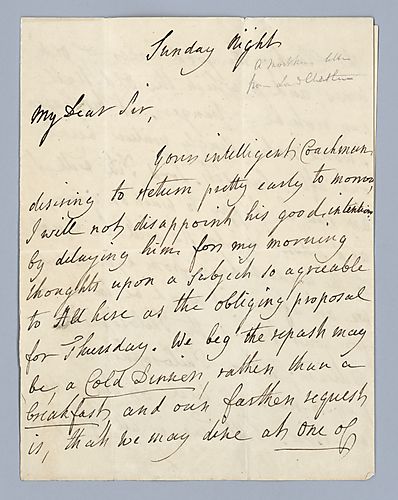 Sunday Night
from
My Dear Sir,
Your intelligent Coachman
desiring to return pretty early to morrow,
I will not disappoint his good intention
by delaying him for my morning
thoughts upon a Subject so agreeable
to All here as the obliging proposal
for Thursday. We beg the repast may
be, a Cold Dinner, rather than a
breakfast, and our farther request
is, that we may dine at one of